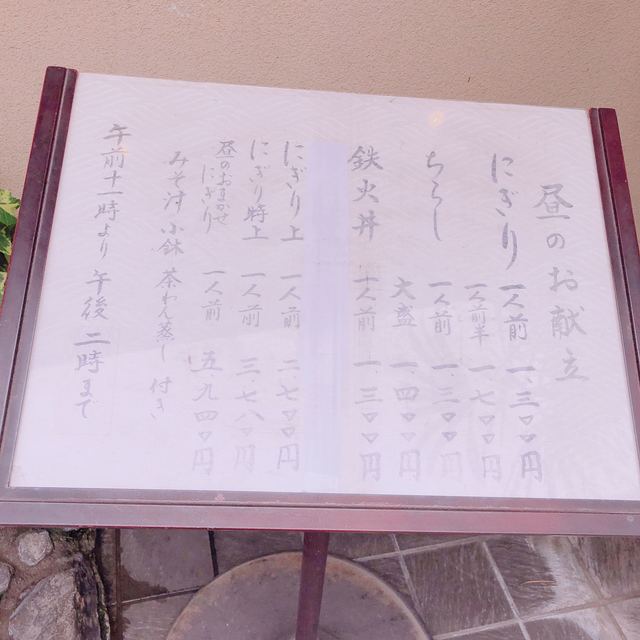 昼のお献立
にぎり 一人前 一、三〇〇円
一人前半 一、七〇〇円
ちらし 一人前 一、三〇〇円
大盛 一、四〇〇円
鉄火丼 一人前 一、三〇〇円
にぎり上 一人前 二、七〇〇円
にぎり特上 一人前 三、七八〇円
昼のおまかせにぎり 一人前 五、九四〇円
みそ汁 小鉢 茶わん蒸し 付き
午前十一時より 午後二時まで